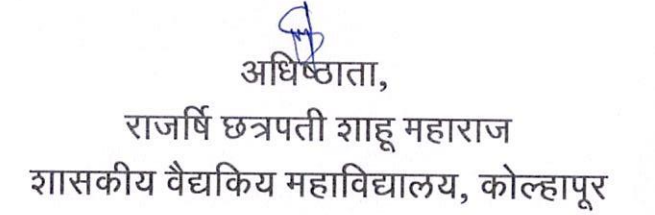 अधिष्ठाता,
राजर्षि छत्रपती शाहू महाराज
शासकीय वैद्यकिय महाविद्यालय, कोल्हापूर